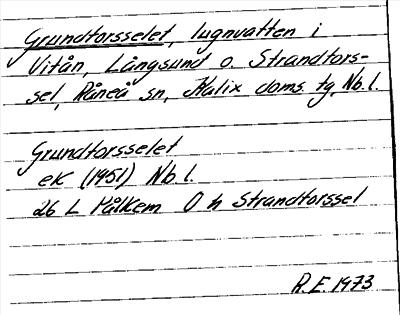 Grundtorsselet, lugnvatten i
Vitån, Långsund o. Strandtors-
sel, Råneå sn, Kalix doms. tg, Nb. l.
Grundtorsselet
ek (1951) Nb l.
26 L Pålkem O h Strandtorssel
R.E. 1973